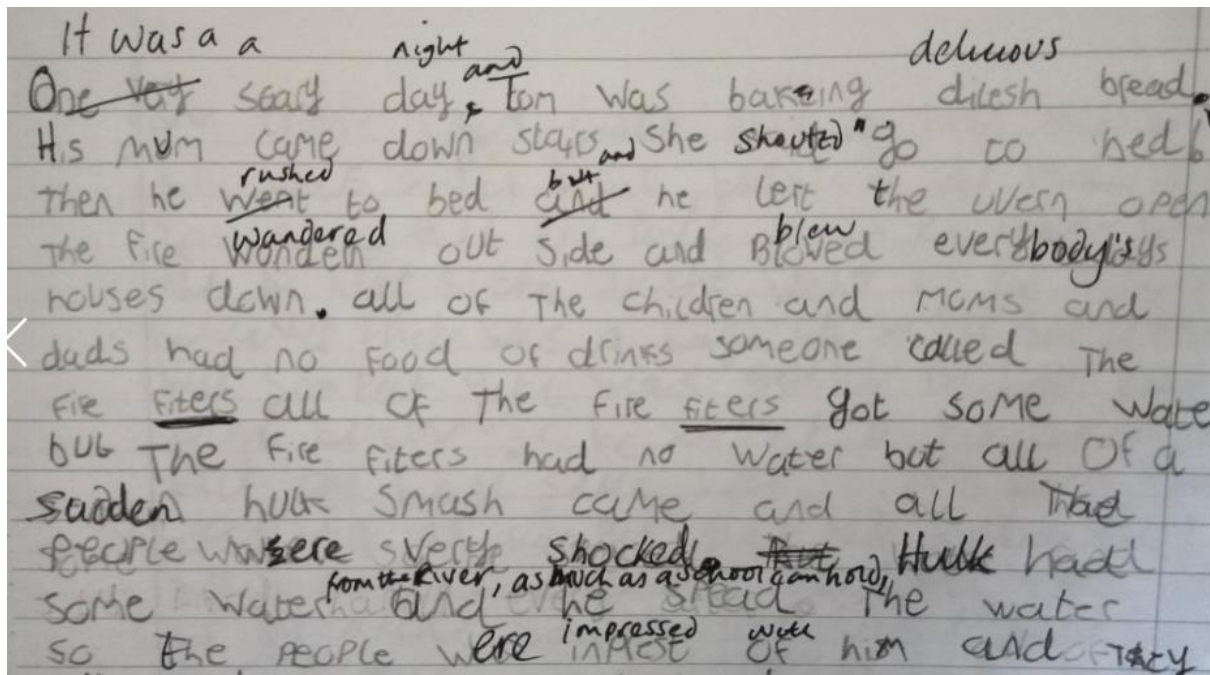 It was a a night and delicious
One very scary day, Tom was bakeing dilesh bread.
His mum came down stairs and She shouted "go to bed
rushed but
Then he went to bed and he left the uvern open
wandered blew
The fire out side and Bloved everybody's
houses down. all of The children and Moms and
dads had no food or drinks someone called The
fire fiters all of The fire fiters got some wate
but The fire fiters had no water but all of a
sadden hulk Smash came and all
people were very shocked. Hulk had
from the River, as much as a school can hold,
some water and he spead The water
impressed with
so the people were of him and